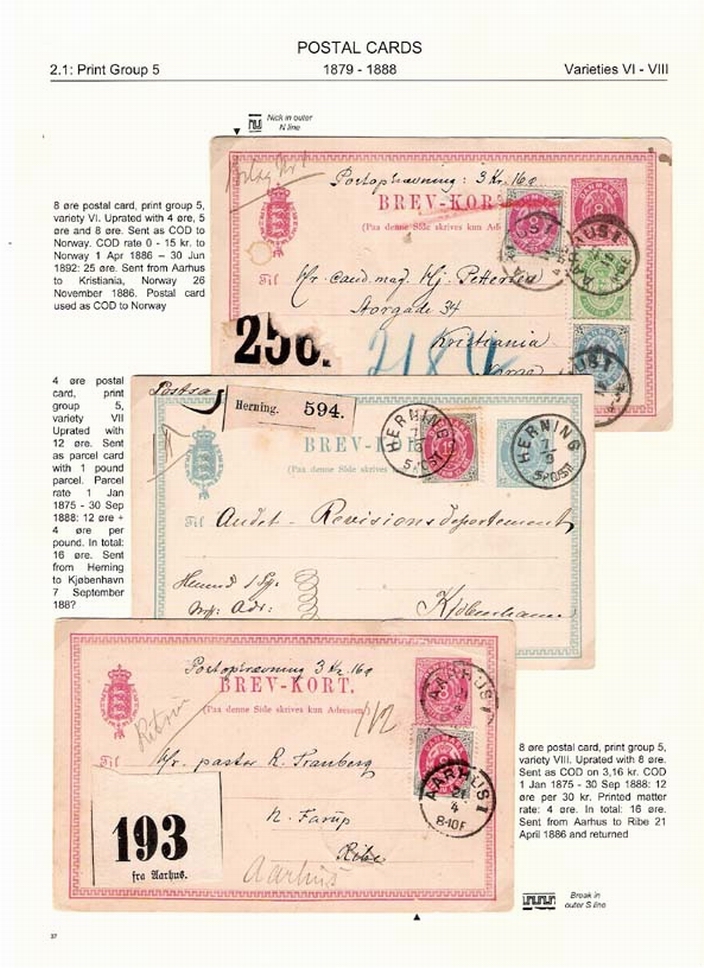 POSTAL CARDS
2.1: Print Group 5
1879 - 1888
Varieties VI - VIII
Nick in outer
N line
8 øre postal card, print group 5,
variety VI. Uprated with 4 øre, 5
øre and 8 øre. Sent as COD to
Norway. COD rate 0 - 15 kr. to
Norway 1 Apr 1886 – 30 Jun
1892: 25 øre. Sent from Aarhus
to Kristiania, Norway 26
November 1886. Postal card
used as COD to Norway
Postopkrævning: 3 Kr. 16ø
BREV-KORT
(Paa denne Side skrives kun Ad
Til
Hr. cand. mag. Hj. Pettersen
Storgade 34
Kristiania
Norge
256.
2184
4 øre postal
card, print
group 5,
variety VII
Uprated with
12 øre. Sent
as parcel card
with 1 pound
parcel. Parcel
rate 1 Jan
1875 - 30 Sep
1888: 12 øre +
4 øre per
pound. In total:
16 øre. Sent
from Herning
to Kjøbenhavn
7 September
188?
Herning. 594.
BREV-K
(Paa denne Side skrives
HERNING
7
9
5 POST
HERNING
7
9
5 POST
Til
Audet-Revisionsdepartement
Kjøbenhavn
Postopkrævning 3 Kr. 16ø
BREV-KORT.
(Paa denne Side skrives kun Adressen)
Til
Hr. pastor R. Franberg
N. Farup
Ribe
Aarhus
193
fra Aarhus.
AARHUS I
AARHUS I
21
4
8-10F
8 øre postal card, print group 5,
variety VIII. Uprated with 8 øre.
Sent as COD on 3,16 kr. COD
1 Jan 1875 - 30 Sep 1888: 12
øre per 30 kr. Printed matter
rate: 4 øre. In total: 16 øre.
Sent from Aarhus to Ribe 21
April 1886 and returned
Break in
outer S line
37